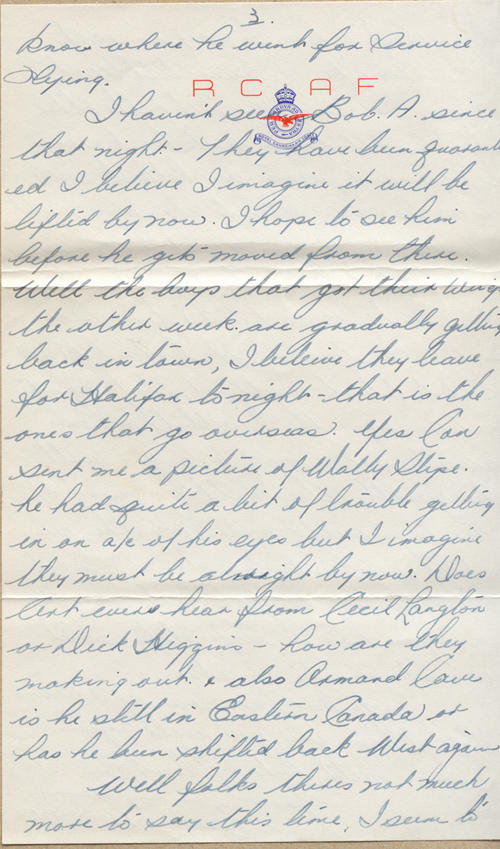 3.
know where he went for Service
Flying.
R C A F
I haven't see Bob. A. since
that night. - They have been quarant
ed I believe I imagine it will be
lifted by now. I hope to see him
before he gets moved from there.
Well the boys that got their wings
the other week. are gradually getting
back in town, I beleive they leave
for Halifax to-night - that is the
ones that go overseas. Yes
sent me a picture of Wally Stipe.
he had quite a bit of trouble getting
in on a/c of his eyes but I imagine
they must be alright by now. Does
Art ever hear from Cecil Langton
or Dick Higgins - how are they
making out. & also Armand Cave
is he still in Eastern Canada or
has he been shifted back West again
Well folks theres not much
more to say this time, I seem to